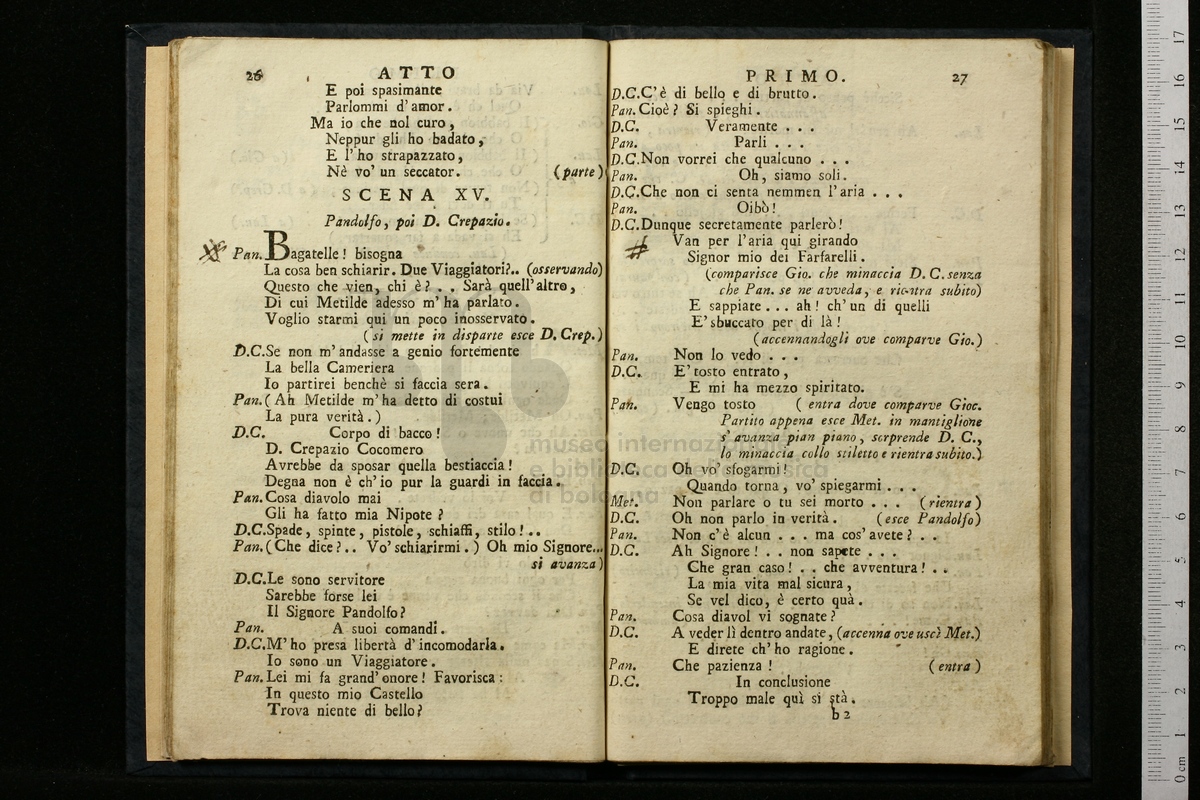 26 ATTO
E poi spasimante
Parlommi d'amor.
Ma io che nol curo,
Neppur gli ho badato,
E l'ho strapazzato,
Nè vo' un seccator. (parte)
SCENA XV.
Pandolfo, poi D. Crepazio.
Pan. Bagatelle! bisogna
La cosa ben schiarir. Due Viaggiatori?.. (osservando)
Questo che vien, chi è? . . Sarà quell'altro,
Di cui Metilde adesso m'ha parlato.
Voglio starmi qui un poco inosservato.
(si mette in disparte esce D. Crep.)
D.C. Se non m'andasse a genio fortemente
La bella Cameriera
Io partirei benchè si faccia sera.
Pan. (Ah Metilde m'ha detto di costui
La pura verità.)
D.C. Corpo di bacco!
D. Crepazio Cocomero
Avrebbe da sposar quella bestiaccia!
Degna non è ch'io pur la guardi in faccia.
Pan. Cosa diavolo mai
Gli ha fatto mia Nipote?
D.C. Spade, spinte, pistole, schiaffi, stilo!..
Pan. (Che dice?.. Vo' schiarirmi.) Oh mio Signore...
si avanza)
D.C. Le sono servitore
Sarebbe forse lei
Il Signore Pandolfo?
Pan. A suoi comandi.
D.C. M'ho presa libertà d'incomodarla.
Io sono un Viaggiatore.
Pan. Lei mi fa grand'onore! Favorisca:
In questo mio Castello
Trova niente di bello?
PRIMO. 27
D.C. C'è di bello e di brutto.
Pan. Cioè? Si spieghi.
D.C. Veramente . . .
Pan. Parli . . .
D.C. Non vorrei che qualcuno . . .
Pan. Oh, siamo soli.
D.C. Che non ci senta nemmen l'aria . . .
Pan. Oibò!
D.C. Dunque secretamente parlerò!
Van per l'aria qui girando
Signor mio dei Farfarelli.
(comparisce Gio. che minaccia D. C. senza
che Pan. se ne avveda, e rientra subito)
E sappiate . . . ah! ch'un di quelli
E' sbuccato per di là!
(accennandogli ove comparve Gio.)
Pan. Non lo vedo . . .
D.C. E' tosto entrato,
E mi ha mezzo spiritato.
Pan. Vengo tosto (entra dove comparve Gioc.
Partito appena esce Met. in mantiglione
s'avanza pian piano, sorprende D. C.,
lo minaccia collo stiletto e rientra subito.)
D.C. Oh vo' sfogarmi!
Quando torna, vo' spiegarmi . . .
Met. Non parlare o tu sei morto . . . (rientra)
D.C. Oh non parlo in verità. (esce Pandolfo)
Pan. Non c'è alcun . . . ma cos'avete? . .
D.C. Ah Signore! . . non sapete . . .
Che gran caso! . . che avventura! . .
La mia vita mal sicura,
Se vel dico, è certo quà.
Pan. Cosa diavol vi sognate?
D.C. A veder lì dentro andate, (accenna ove uscì Met.)
E direte ch'ho ragione.
Pan. Che pazienza! (entra)
D.C. In conclusione
Troppo male quì si stà.
b 2
museo internazionale
e biblioteca della musica
di bologna
0 cm 1 2 3 4 5 6 7 8 9 10 11 12 13 14 15 16 17